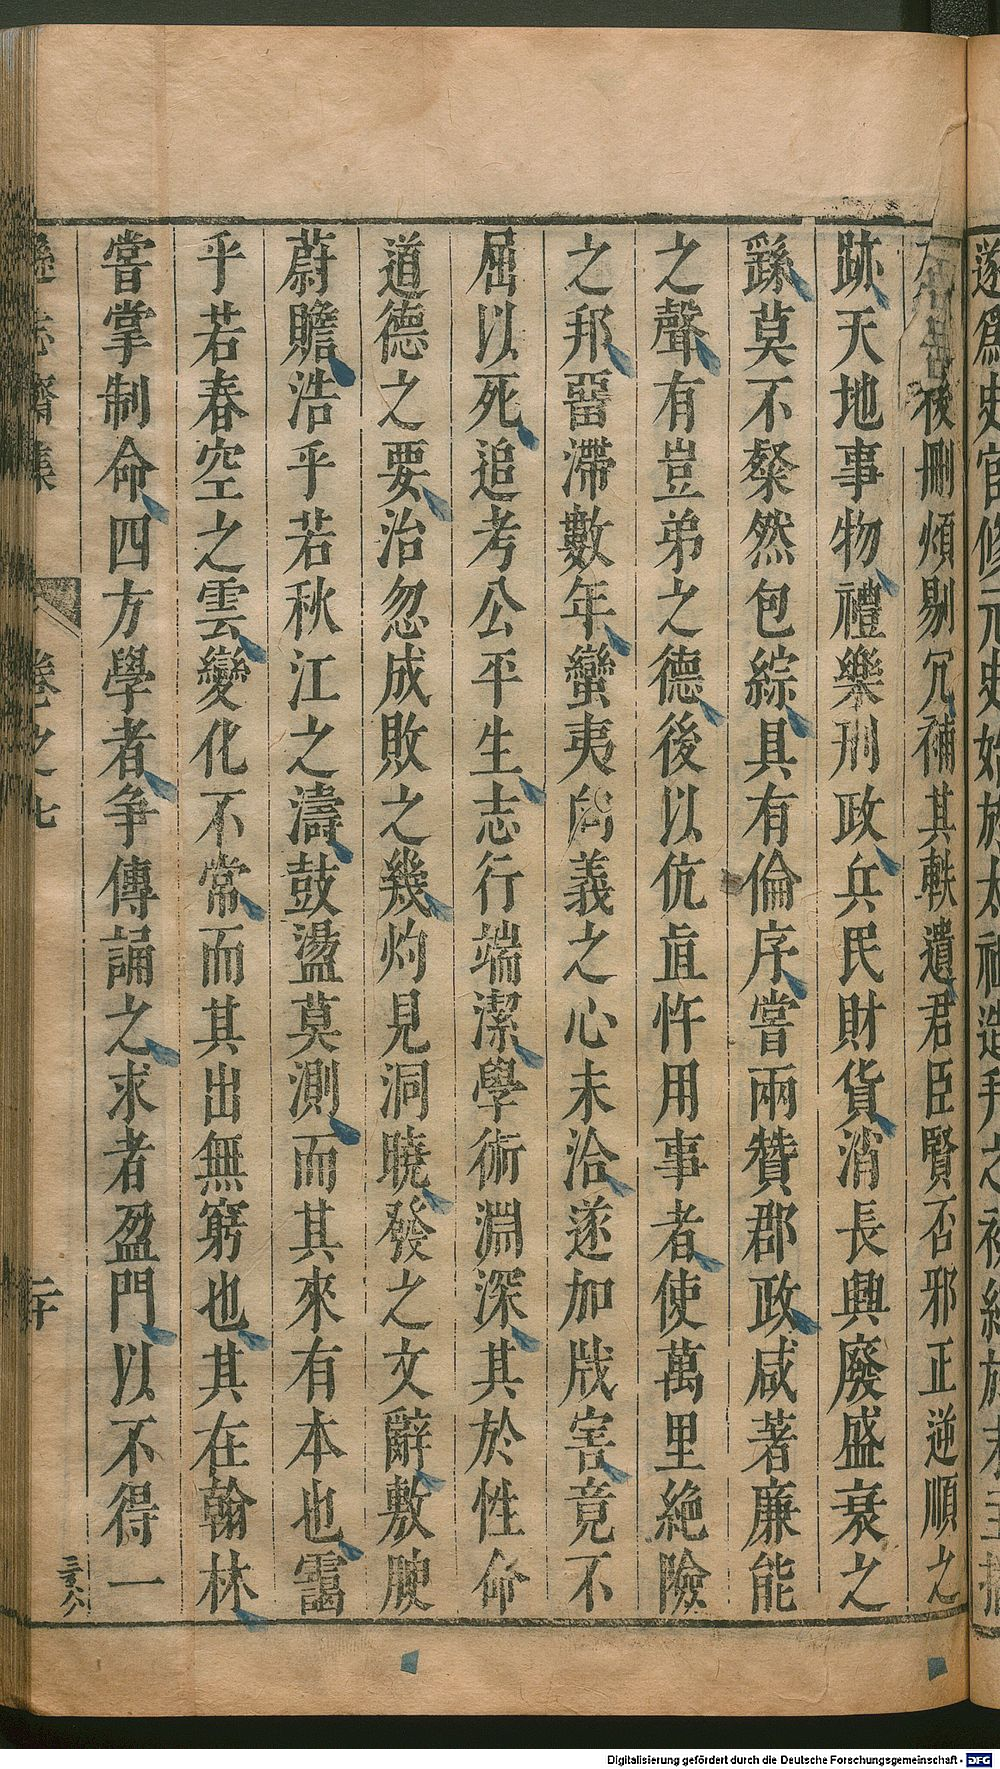 遂爲史官修元史始於太祖造邦之初終於末主
後刪煩剔冗補其軼遺君臣賢否邪正逆順之
跡天地事物禮樂刑政兵民財貨消長興廢盛衰之
繇莫不粲然包綜具有倫序嘗兩贊郡政咸著廉能
之聲有豈弟之德後以伉直忤用事者使萬里絶險
之邦畱滯數年蠻夷向義之心未洽遂加戕害竟不
屈以死追考公平生志行端潔學術淵深其於性命
道德之要治忽成敗之幾灼見洞曉發之文辭敷腴
蔚贍浩乎若秋江之濤鼓盪莫測而其來有本也靄
乎若春空之雲變化不常而其出無窮也其在翰林
嘗掌制命四方學者爭傳誦之求者盈門以不得一
遜志齋集 卷之七 二十
Digitalisierung gefördert durch die Deutsche Forschungsgemeinschaft - DFG